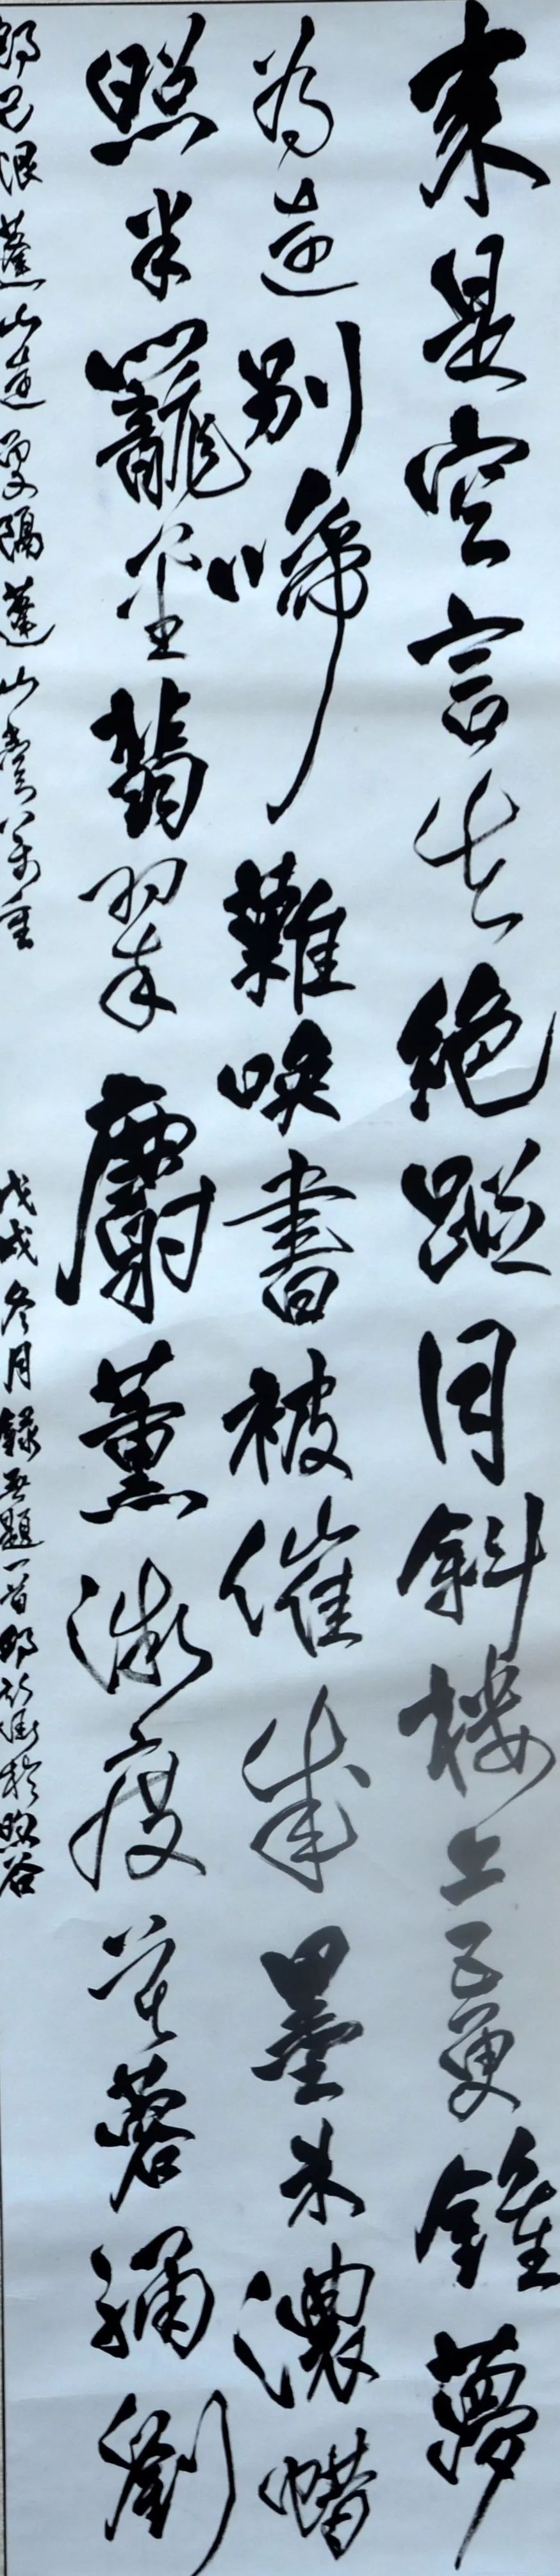 来是空言去絶蹤月斜楼上五更鍾夢
為遠別啼難喚書被催成墨未濃蜡
照半籠金翡翠麝薰微度芙蓉繡劉
郎已恨蓬山遠更隔蓬山一万重 戊戌冬月録無題一首 於